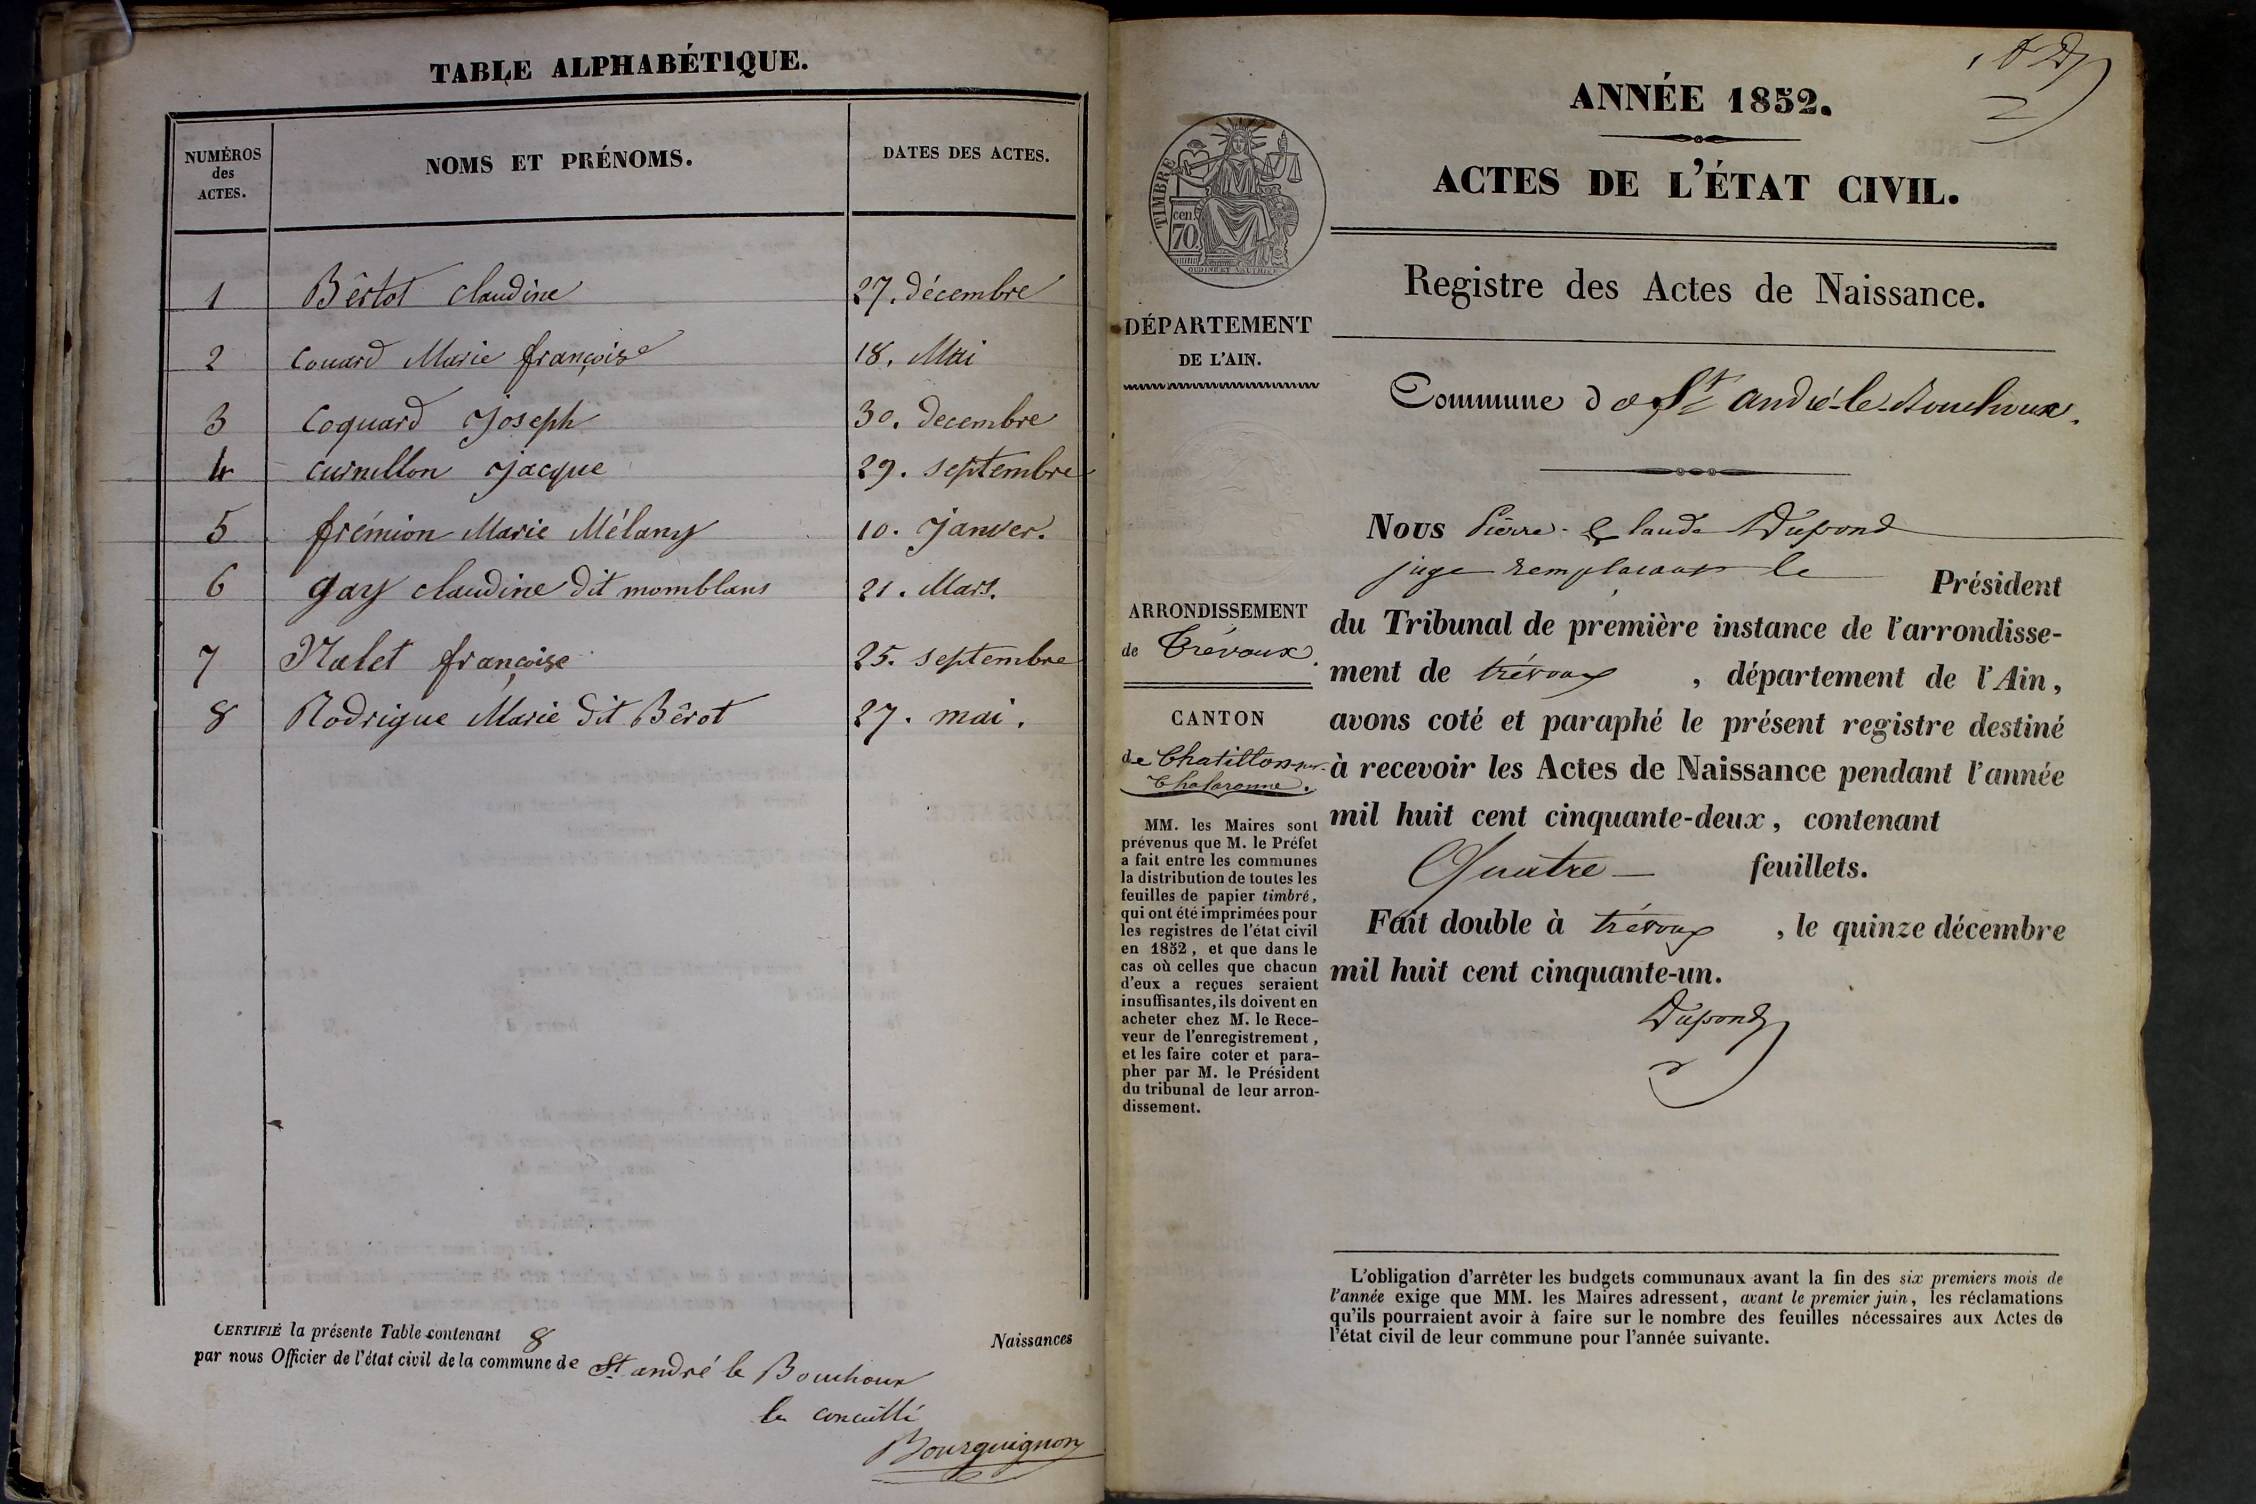 TABLE ALPHABÉTIQUE.
NUMÉROS
des
ACTES.
NOMS ET PRÉNOMS.
DATES DES ACTES.
1 Bêrtot claudine 27. décembre
2 couard Marie françoise 18. Mai
3 Coquard Joseph 30. decembre
4 curnillon Jacque 29. septembre
5 frémion Marie Mélany 10. Janvier.
6 gay claudine dit momblans 21. Mars.
7 Nalet françoise 25. septembre
8 Rodrigue Marie dit Bêrot 27. mai.
CERTIFIÉ la présente Table contenant 8 Naissances
par nous Officier de l'état civil de la commune de St andré le Bouchoux
le
Bourguignon
ANNÉE 1852.
ACTES DE L'ÉTAT CIVIL.
TIMBRE
cen.
70
OUDINE ET VAUTHIER
Registre des Actes de Naissance.
DÉPARTEMENT
DE L'AIN.
Commune de St andré-le-Bouchoux.
ARRONDISSEMENT
de Trévoux.
CANTON
de Chatillon-sur-
Chalaronne.
MM. les Maires sont
prévenus que M. le Préfet
a fait entre les communes
la distribution de toutes les
feuilles de papier timbré,
qui ont été imprimées pour
les registres de l'état civil
en 1852, et que dans le
cas où celles que chacun
d'eux a reçues seraient
insuffisantes, ils doivent en
acheter chez M. le Rece-
veur de l'enregistrement,
et les faire coter et para-
pher par M. le Président
du tribunal de leur arron-
dissement.
Nous Pierre-Claude Dupond
juge remplaçant le Président
du Tribunal de première instance de l'arrondisse-
ment de trévoux, département de l'Ain,
avons coté et paraphé le présent registre destiné
à recevoir les Actes de Naissance pendant l'année
mil huit cent cinquante-deux, contenant
Quatre feuillets.
Fait double à trévoux, le quinze décembre
mil huit cent cinquante-un.
Dupond
L'obligation d'arrêter les budgets communaux avant la fin des six premiers mois de
l'année exige que MM. les Maires adressent, avant le premier juin, les réclamations
qu'ils pourraient avoir à faire sur le nombre des feuilles nécessaires aux Actes de
l'état civil de leur commune pour l'année suivante.